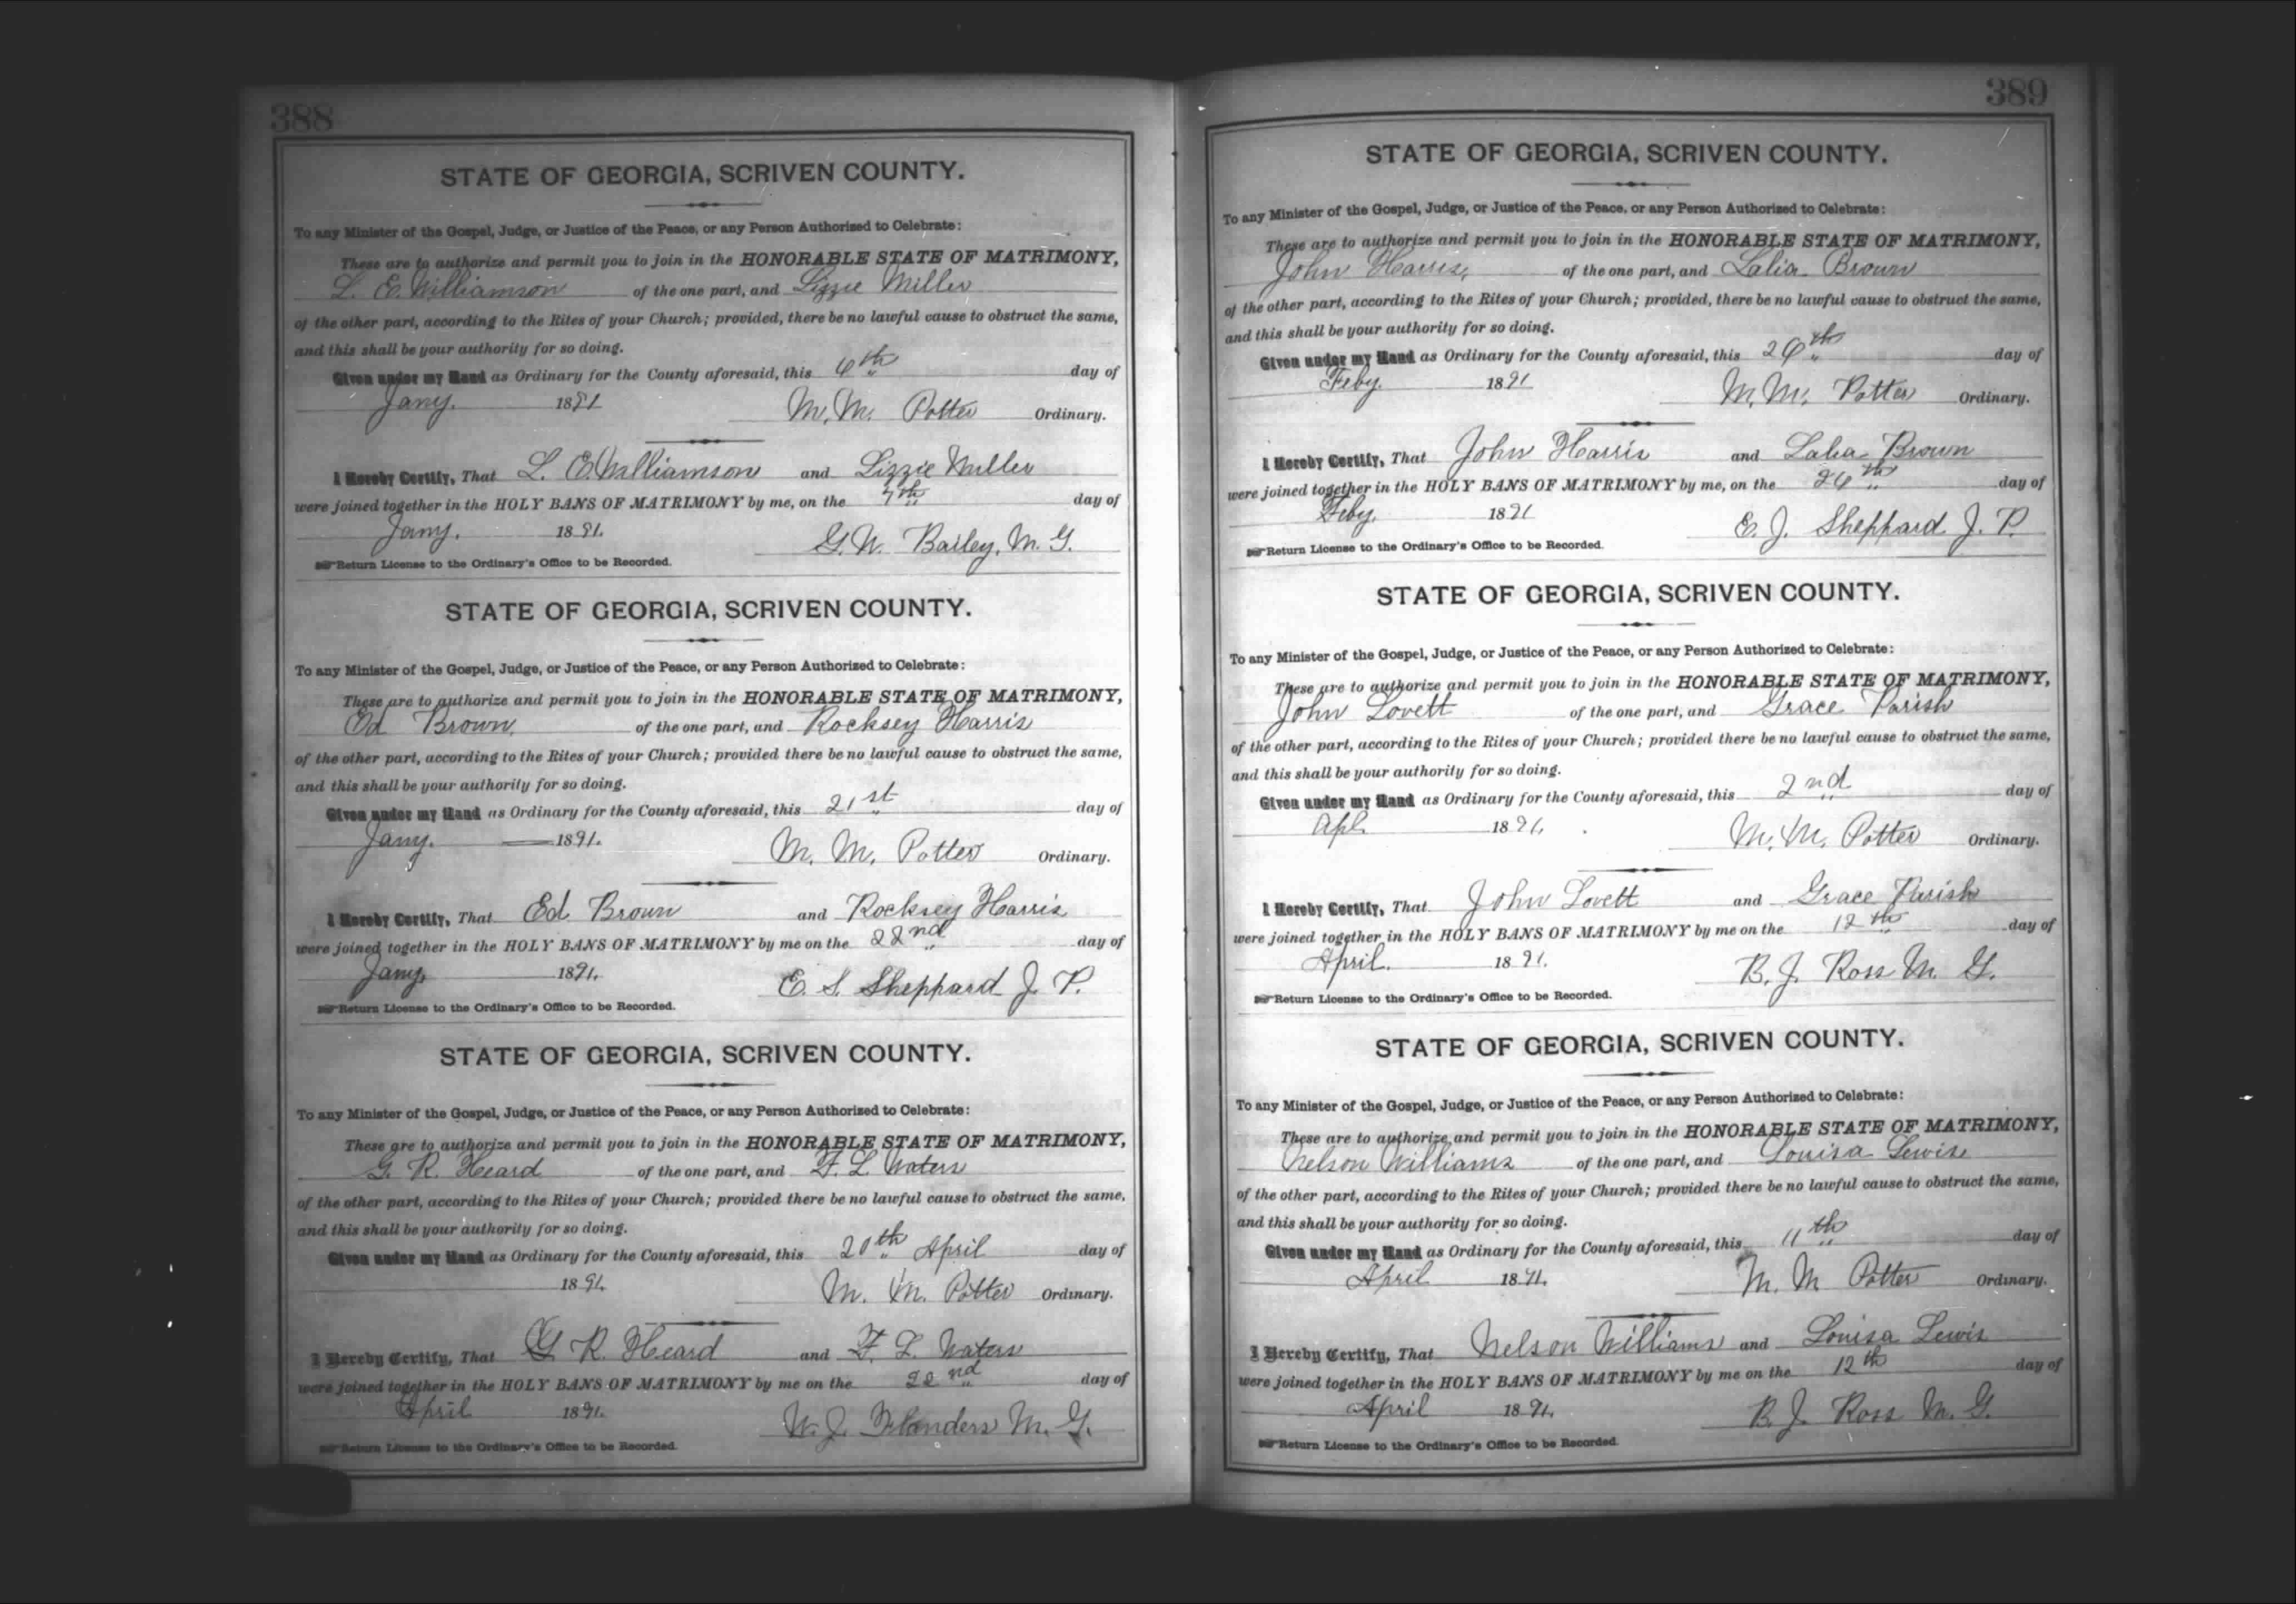 388
STATE OF GEORGIA, SCRIVEN COUNTY.
To any Minister of the Gospel, Judge, or Justice of the Peace, or any Person Authorized to Celebrate:
These are to authorize and permit you to join in the HONORABLE STATE OF MATRIMONY,
L. E. Williamson of the one part, and Lizzie Miller
of the other part, according to the Rites of your Church; provided, there be no lawful cause to obstruct the same,
and this shall be your authority for so doing.
Given under my Hand as Ordinary for the County aforesaid, this 6th day of
Jany. 1891 M. M. Potter Ordinary.
I Hereby Certify, That L. E. Williamson and Lizzie Miller
were joined together in the HOLY BANS OF MATRIMONY by me, on the 7th day of
Jany. 1891. G. W. Bailey, M. G.
Return License to the Ordinary's Office to be Recorded.
STATE OF GEORGIA, SCRIVEN COUNTY.
To any Minister of the Gospel, Judge, or Justice of the Peace, or any Person Authorized to Celebrate:
These are to authorize and permit you to join in the HONORABLE STATE OF MATRIMONY,
Ed Brown, of the one part, and Rocksey Harris
of the other part, according to the Rites of your Church; provided there be no lawful cause to obstruct the same,
and this shall be your authority for so doing.
Given under my Hand as Ordinary for the County aforesaid, this 21st day of
Jany. 1891. M. M. Potter Ordinary.
I Hereby Certify, That Ed Brown and Rocksey Harris
were joined together in the HOLY BANS OF MATRIMONY by me on the 22nd day of
Jany, 1891. E. S. Sheppard J. P.
Return License to the Ordinary's Office to be Recorded.
STATE OF GEORGIA, SCRIVEN COUNTY.
To any Minister of the Gospel, Judge, or Justice of the Peace, or any Person Authorized to Celebrate:
These are to authorize and permit you to join in the HONORABLE STATE OF MATRIMONY,
G. R. Heard of the one part, and F. L. Waters
of the other part, according to the Rites of your Church; provided there be no lawful cause to obstruct the same,
and this shall be your authority for so doing.
Given under my Hand as Ordinary for the County aforesaid, this 20th April day of
1891. M. M. Potter Ordinary.
I Hereby Certify, That G R. Heard and F. L. Waters
were joined together in the HOLY BANS OF MATRIMONY by me on the 22nd day of
April 1891. W. J. Flanders M. G.
Return License to the Ordinary's Office to be Recorded.
389
STATE OF GEORGIA, SCRIVEN COUNTY.
To any Minister of the Gospel, Judge, or Justice of the Peace, or any Person Authorized to Celebrate:
These are to authorize and permit you to join in the HONORABLE STATE OF MATRIMONY,
John Harris, of the one part, and Lalia Brown
of the other part, according to the Rites of your Church; provided, there be no lawful cause to obstruct the same,
and this shall be your authority for so doing.
Given under my Hand as Ordinary for the County aforesaid, this 26th day of
Feby. 1891 M. M. Potter Ordinary.
I Hereby Certify, That John Harris and Lalia Brown
were joined together in the HOLY BANS OF MATRIMONY by me, on the 26th day of
Feby. 1891 E. J. Sheppard J. P.
Return License to the Ordinary's Office to be Recorded.
STATE OF GEORGIA, SCRIVEN COUNTY.
To any Minister of the Gospel, Judge, or Justice of the Peace, or any Person Authorized to Celebrate:
These are to authorize and permit you to join in the HONORABLE STATE OF MATRIMONY,
John Lovett of the one part, and Grace Parish
of the other part, according to the Rites of your Church; provided there be no lawful cause to obstruct the same,
and this shall be your authority for so doing.
Given under my Hand as Ordinary for the County aforesaid, this 2nd day of
Apl. 1891. M. M. Potter Ordinary.
I Hereby Certify, That John Lovett and Grace Parish
were joined together in the HOLY BANS OF MATRIMONY by me on the 12th day of
April. 1891. B. J. Ross M. G.
Return License to the Ordinary's Office to be Recorded.
STATE OF GEORGIA, SCRIVEN COUNTY.
To any Minister of the Gospel, Judge, or Justice of the Peace, or any Person Authorized to Celebrate:
These are to authorize and permit you to join in the HONORABLE STATE OF MATRIMONY,
Nelson Williams of the one part, and Louisa Lewis
of the other part, according to the Rites of your Church; provided there be no lawful cause to obstruct the same,
and this shall be your authority for so doing.
Given under my Hand as Ordinary for the County aforesaid, this 11th day of
April 1891. M. M Potter Ordinary.
I Hereby Certify, That Nelson Williams and Louisa Lewis
were joined together in the HOLY BANS OF MATRIMONY by me on the 12th day of
April 1891. B. J. Ross M. G.
Return License to the Ordinary's Office to be Recorded.